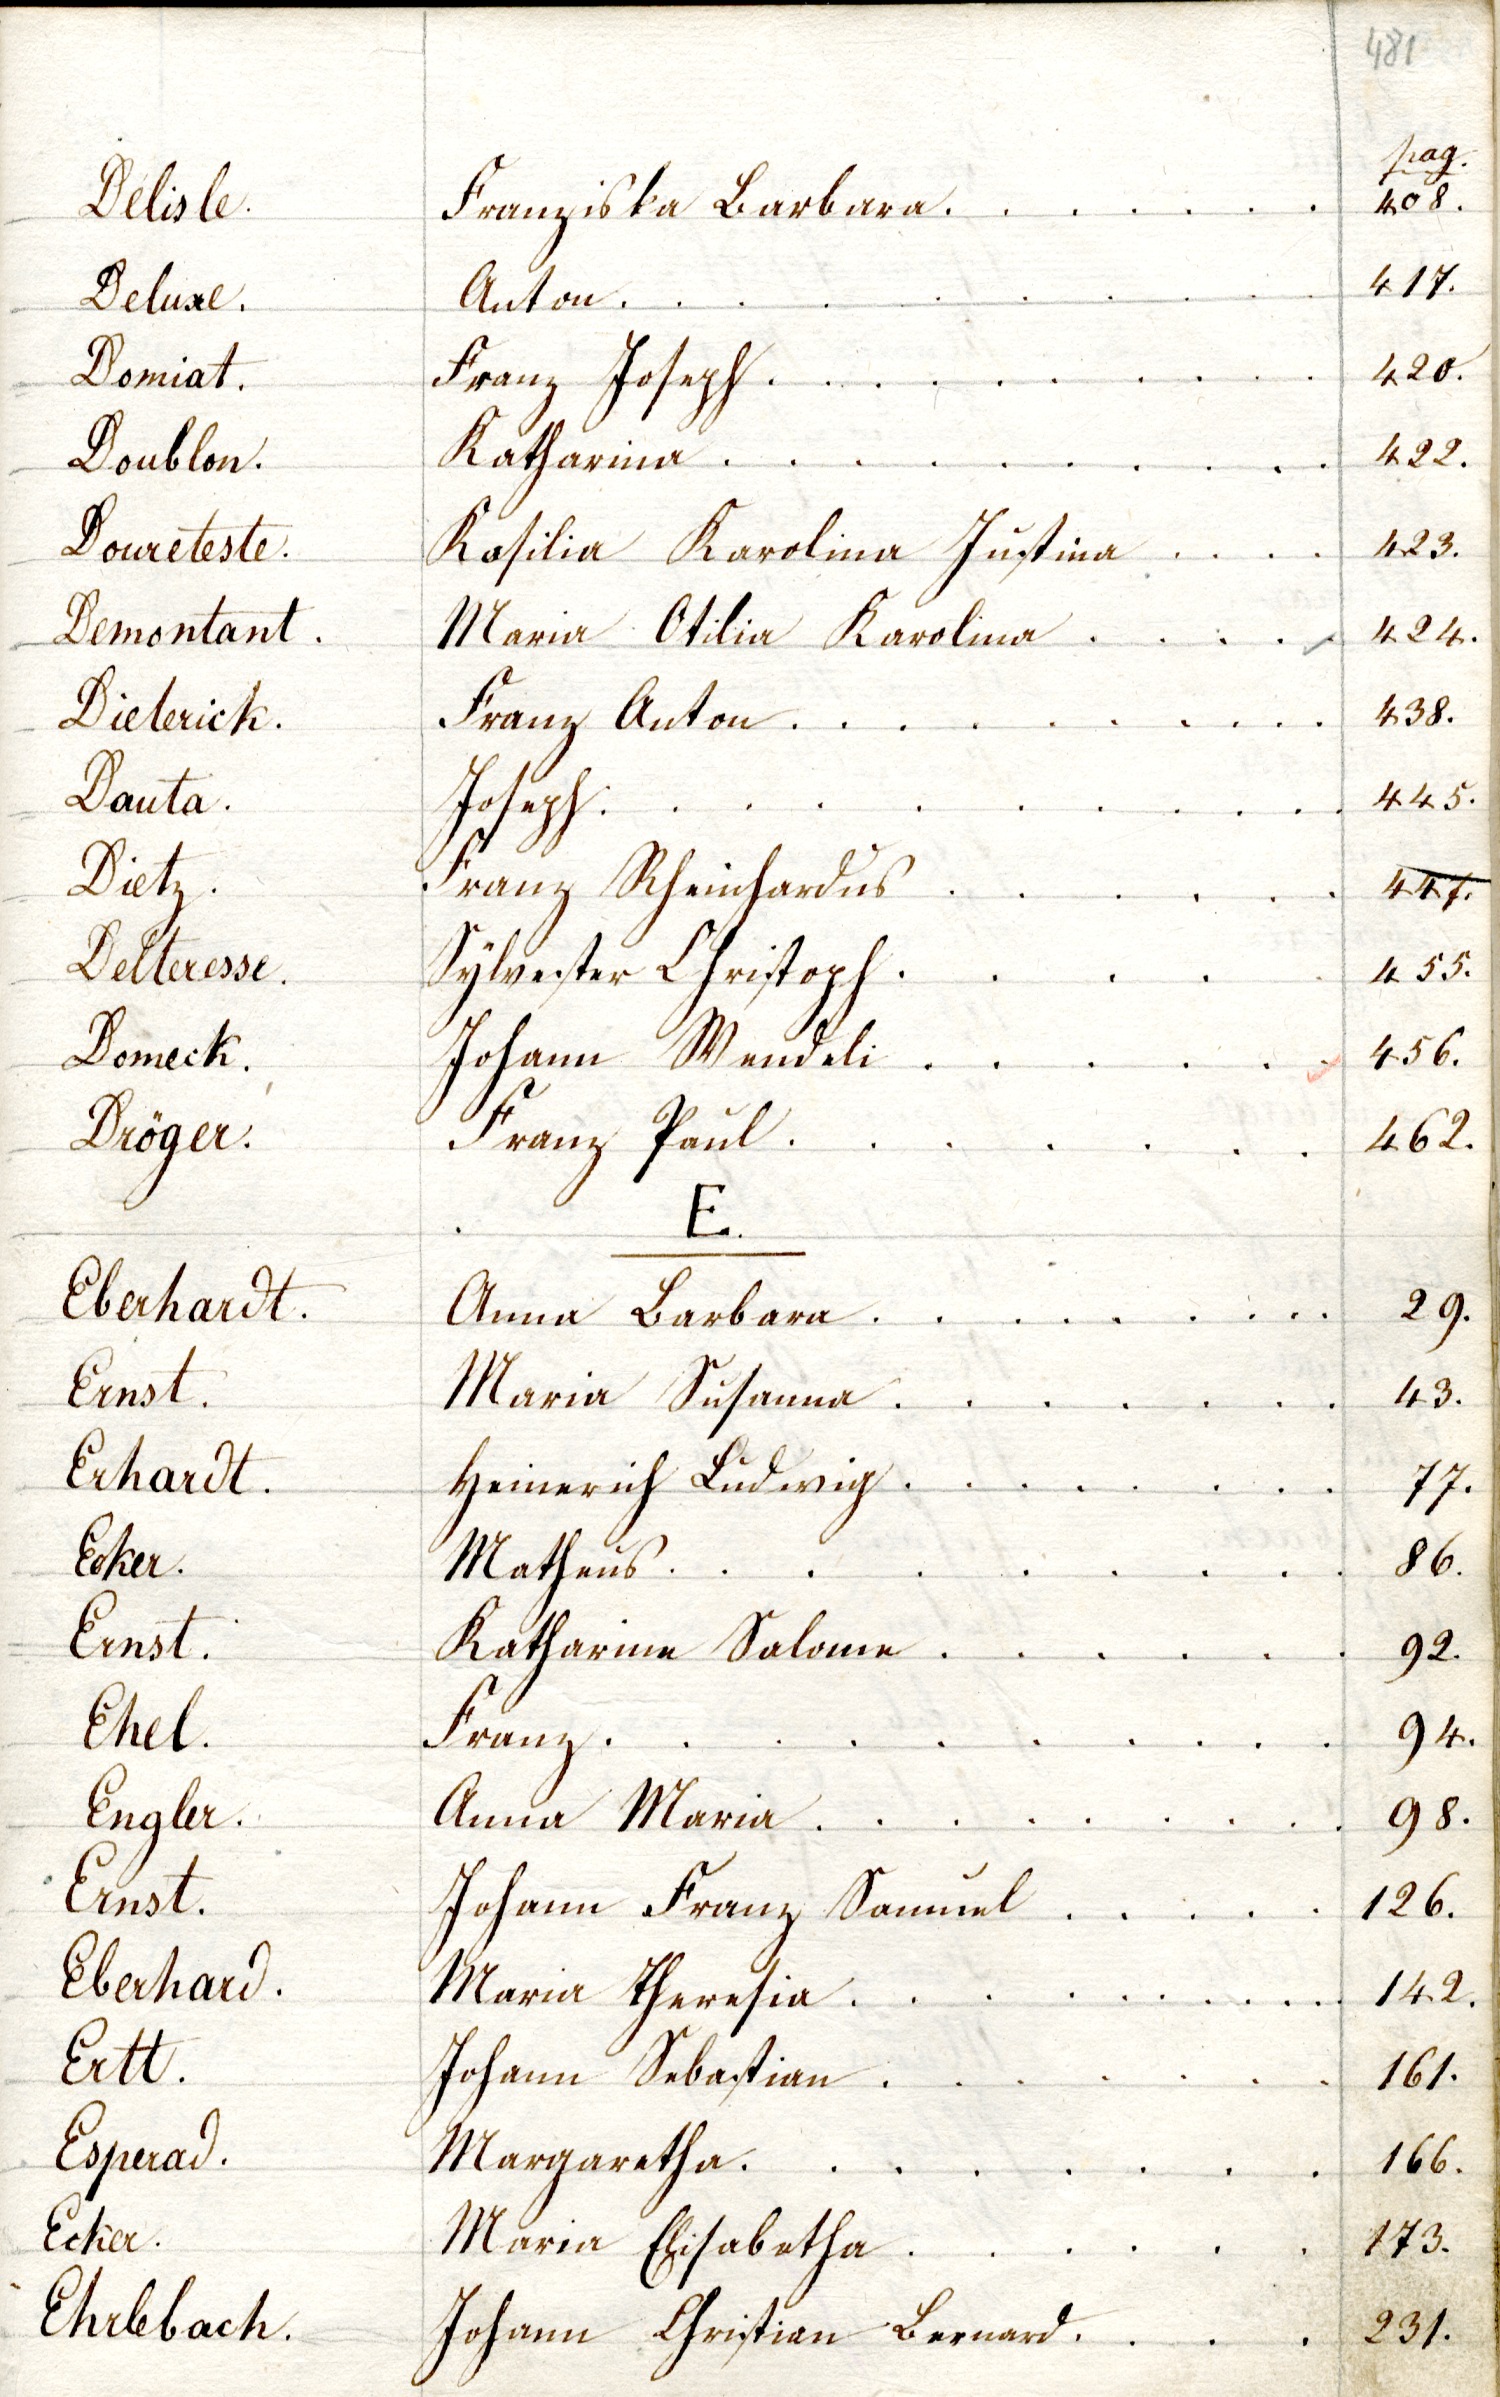 481
pag.
Delisle. Franziska Barbara. . . . . . . 408.
Deluxe. Anton. . . . . . . . . 417.
Domiat. Franz Joseph. . . . . . . . . 420.
Doublon. Katharina . . . . . . . . . 422.
Doureteste. Kosilia Karolina Justina . . . . 423.
Demontant. Maria Otilia Karolina . . . . 424.
Dieterick. Franz Anton. . . . . . . . . 438.
Dauta. Joseph. . . . . . . . . . 445.
Dietz. Franz Rheinhardus . . . . . . 447.
Delteresse. Sÿlvester Christoph. . . . . 455.
Domeck. Johann Wendeli . . . . . . 456.
Dröger. Franz Paul. . . . . . . 462.
E.
Eberhardt. Anna Barbara. . . . . . . . . 29.
Ernst. Maria Susanna. . . . . . . 43.
Erhardt. Heinerich Ludwig. . . . . . . 77.
Ecker. Matheus. . . . . . . . . 86.
Ernst. Katharine Salome . . . . . . 92.
Ehel. Franz. . . . . . . . . . 94.
Engler. Anna Maria. . . . . . . . . 98.
Ernst. Johann Franz Samuel . . . . . 126.
Eberhard. Maria Theresia. . . . . . . . . . 142.
Ertt. Johann Sebastian . . . . . . . 161.
Esperad. Margaretha. . . . . . . . 166.
Ecker. Maria Elisabetha . . . . . . 173.
Ehrlebach. Johann Christian Bernard. . . . 231.